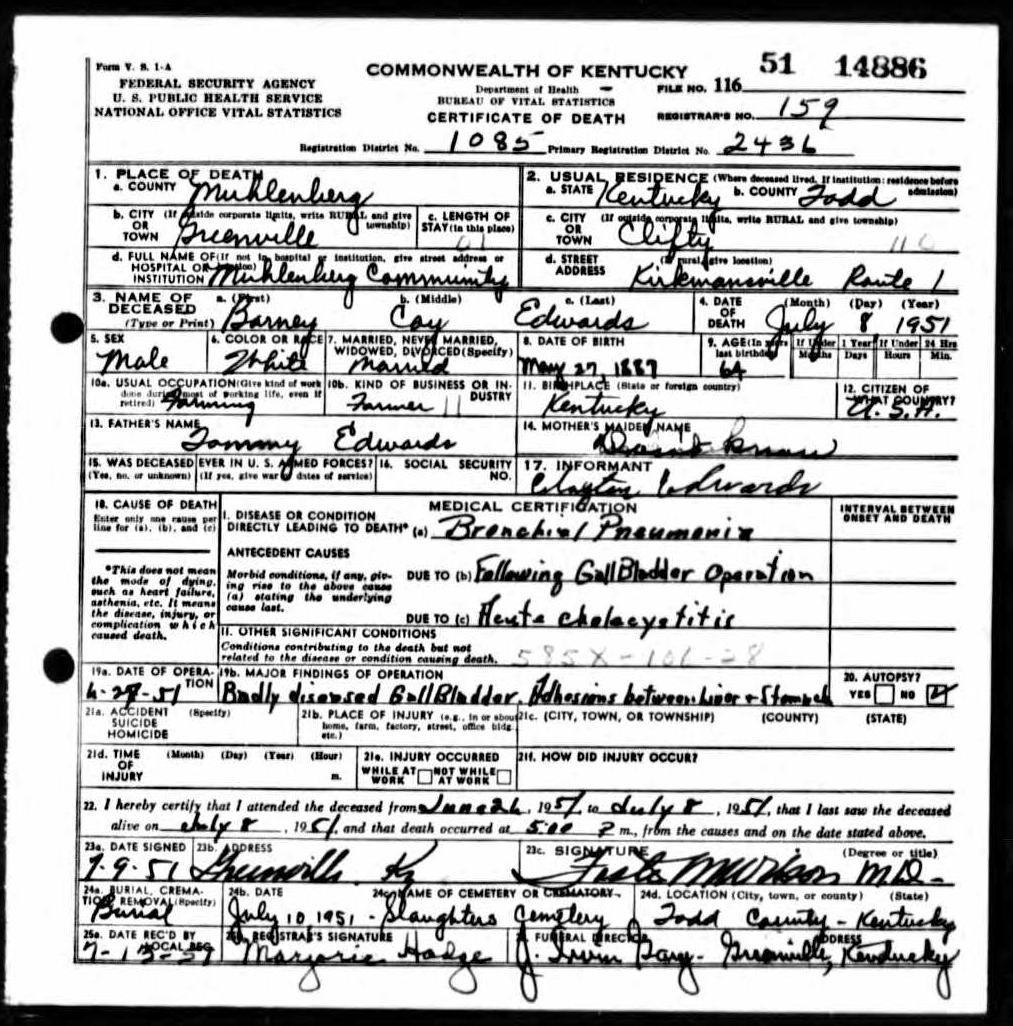 Form V. S. 1-A
FEDERAL SECURITY AGENCY
U. S. PUBLIC HEALTH SERVICE
NATIONAL OFFICE VITAL STATISTICS
COMMONWEALTH OF KENTUCKY
Department of Health
BUREAU OF VITAL STATISTICS
CERTIFICATE OF DEATH
FILE NO. 116 51 14886
REGISTRAR'S NO. 159
Registration District No. 1085 Primary Registration District No. 2436
1. PLACE OF DEATH
a. COUNTY Muhlenberg
2. USUAL RESIDENCE (Where deceased lived. If institution: residence before admission)
a. STATE Kentucky b. COUNTY Todd
b. CITY (If outside corporate limits, write RURAL and give township) OR TOWN Greenville
c. LENGTH OF STAY (in this place)
c. CITY (If outside corporate limits, write RURAL and give township) OR TOWN Clifty
d. FULL NAME OF (If not in hospital or institution, give street address or location) HOSPITAL OR INSTITUTION Muhlenberg Community
d. STREET ADDRESS (If rural, give location) Kirkmansville Route 1
3. NAME OF DECEASED (Type or Print)
a. (First) Barney b. (Middle) Coy c. (Last) Edwards
4. DATE OF DEATH (Month) (Day) (Year) July 8 1951
5. SEX Male
6. COLOR OR RACE White
7. MARRIED, NEVER MARRIED, WIDOWED, DIVORCED (Specify) Married
8. DATE OF BIRTH May 27, 1887
9. AGE (In years last birthday) 64 If Under 1 Year Months Days If Under 24 Hrs Hours Min.
10a. USUAL OCCUPATION (Give kind of work done during most of working life, even if retired) Farming
10b. KIND OF BUSINESS OR INDUSTRY Farmer
11. BIRTHPLACE (State or foreign country) Kentucky
12. CITIZEN OF WHAT COUNTRY? U.S.A.
13. FATHER'S NAME Tommy Edwards
14. MOTHER'S MAIDEN NAME Don't know
15. WAS DECEASED EVER IN U. S. ARMED FORCES? (Yes, no, or unknown) (If yes, give war or dates of service)
16. SOCIAL SECURITY NO.
17. INFORMANT Clayton Edwards
18. CAUSE OF DEATH
Enter only one cause per line for (a), (b), and (c)
*This does not mean the mode of dying, such as heart failure, asthenia, etc. It means the disease, injury, or complication which caused death.
MEDICAL CERTIFICATION
INTERVAL BETWEEN ONSET AND DEATH
I. DISEASE OR CONDITION DIRECTLY LEADING TO DEATH* (a) Bronchial Pneumonia
ANTECEDENT CAUSES
Morbid conditions, if any, giving rise to the above cause (a) stating the underlying cause last.
DUE TO (b) Following GallBladder Operation
DUE TO (c) Acute cholecystitis
II. OTHER SIGNIFICANT CONDITIONS
Conditions contributing to the death but not related to the disease or condition causing death.
585X-106-28
19a. DATE OF OPERATION 6-27-51
19b. MAJOR FINDINGS OF OPERATION Badly diseased GallBladder, Adhesions between Liver + Stomach
20. AUTOPSY? YES NO
21a. ACCIDENT SUICIDE HOMICIDE (Specify)
21b. PLACE OF INJURY (e.g., in or about home, farm, factory, street, office bldg. etc.)
21c. (CITY, TOWN, OR TOWNSHIP) (COUNTY) (STATE)
21d. TIME OF INJURY (Month) (Day) (Year) (Hour) m.
21e. INJURY OCCURRED WHILE AT WORK NOT WHILE AT WORK
21f. HOW DID INJURY OCCUR?
22. I hereby certify that I attended the deceased from June 26, 1951, to July 8, 1951, that I last saw the deceased
alive on July 8, 1951, and that death occurred at 5:00 P m., from the causes and on the date stated above.
23a. DATE SIGNED 7-9-51
23b. ADDRESS Greenville Ky
23c. SIGNATURE (Degree or title) M.D.
24a. BURIAL, CREMATION, REMOVAL (Specify) Burial
24b. DATE July 10, 1951
24c. NAME OF CEMETERY OR CREMATORY Slaughters Cemetery
24d. LOCATION (City, town, or county) (State) Todd County - Kentucky
25a. DATE REC'D BY LOCAL REG.
REGISTRAR'S SIGNATURE Marjorie Hodge
FUNERAL DIRECTOR ADDRESS J. Irvin Gary - Greenville, Kentucky